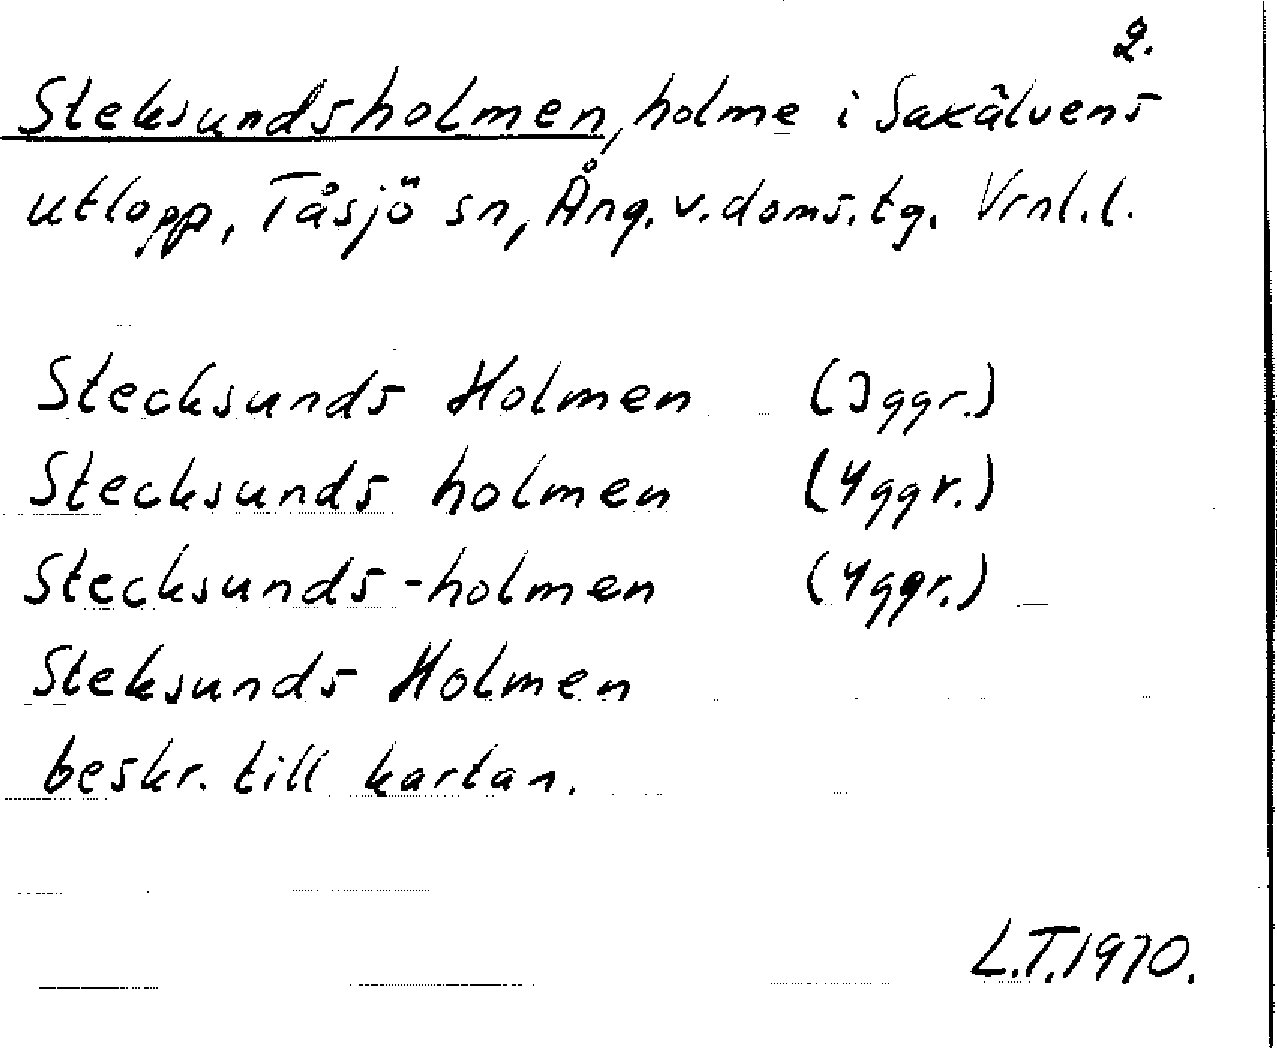 2.
Steksundsholmen, holme i Saxälvens
utlopp, Tåsjö sn, Ång. v. doms. tg. Vrnl. l.
Stecksunds Holmen (3 ggr.)
Stecksunds holmen (4 ggr.)
Stecksunds-holmen (4 ggr.)
Steksunds Holmen
beskr. till kartan.
L.T. 1970.